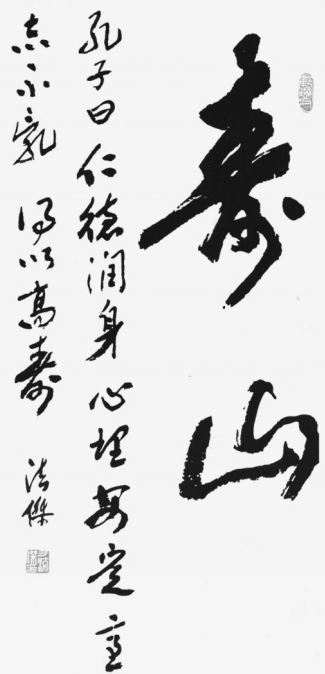 寿山
孔子曰仁德润身心理安宽意
志不乱得以高寿
法傑